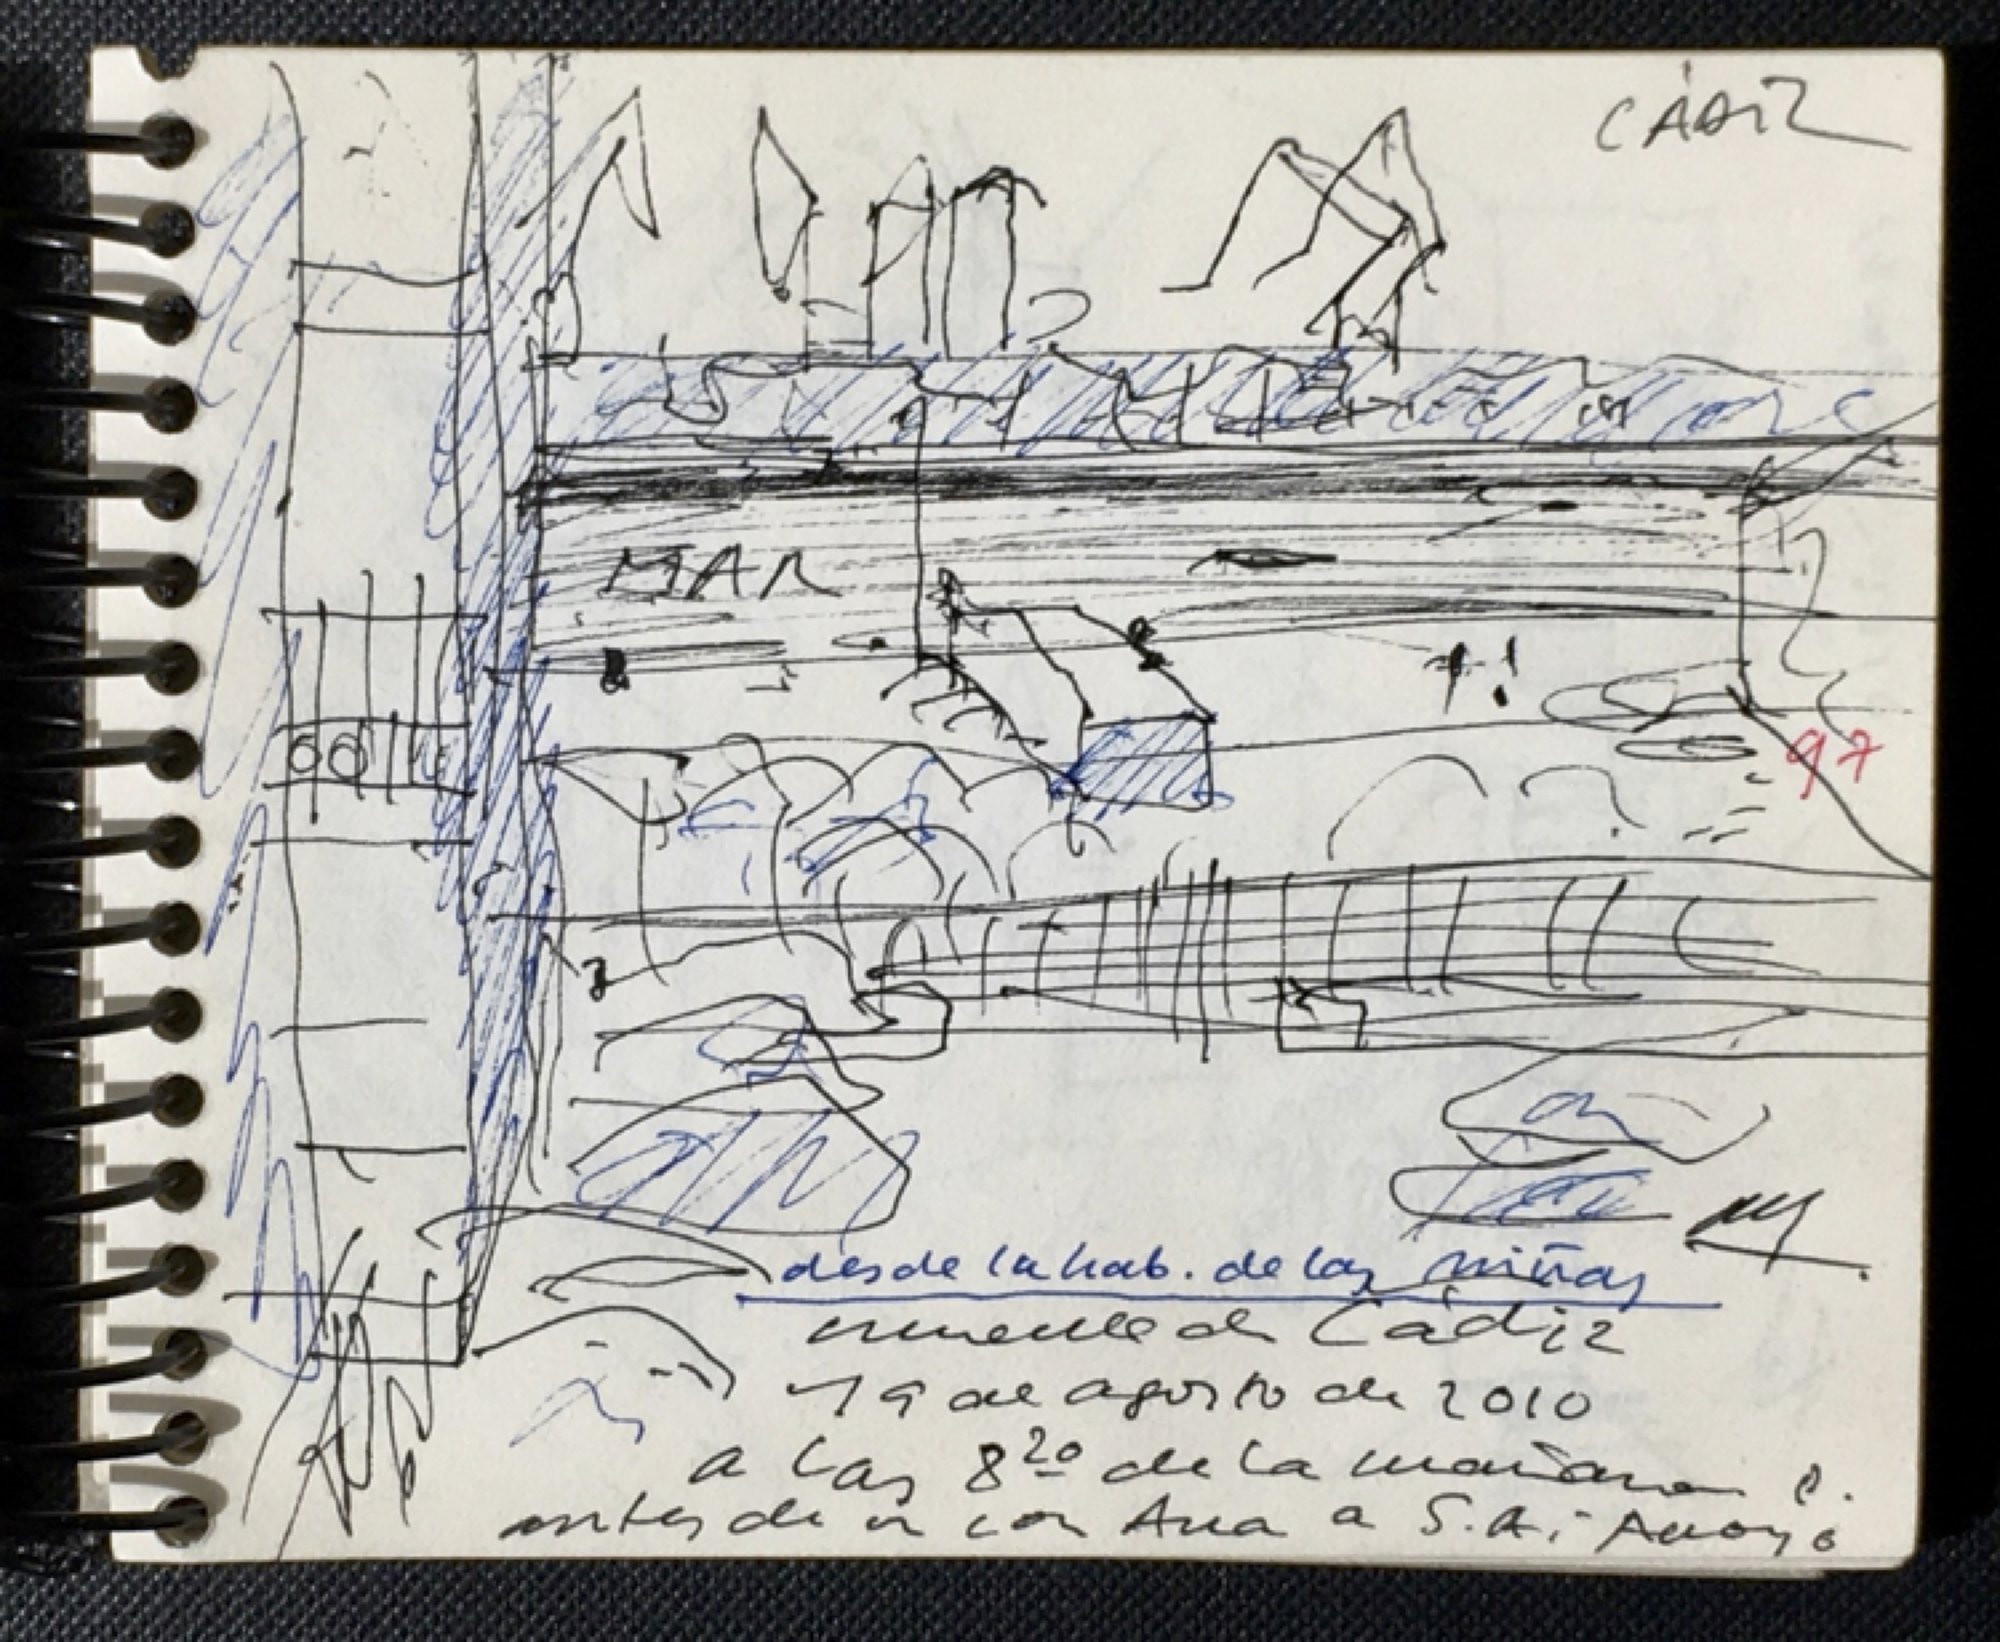 CÁDIZ
MAR
97
desde la hab. de las niñas
muelle de Cádiz
19 de agosto de 2010
a las 8 20 de la mañana
antes de ir con Ana a S.